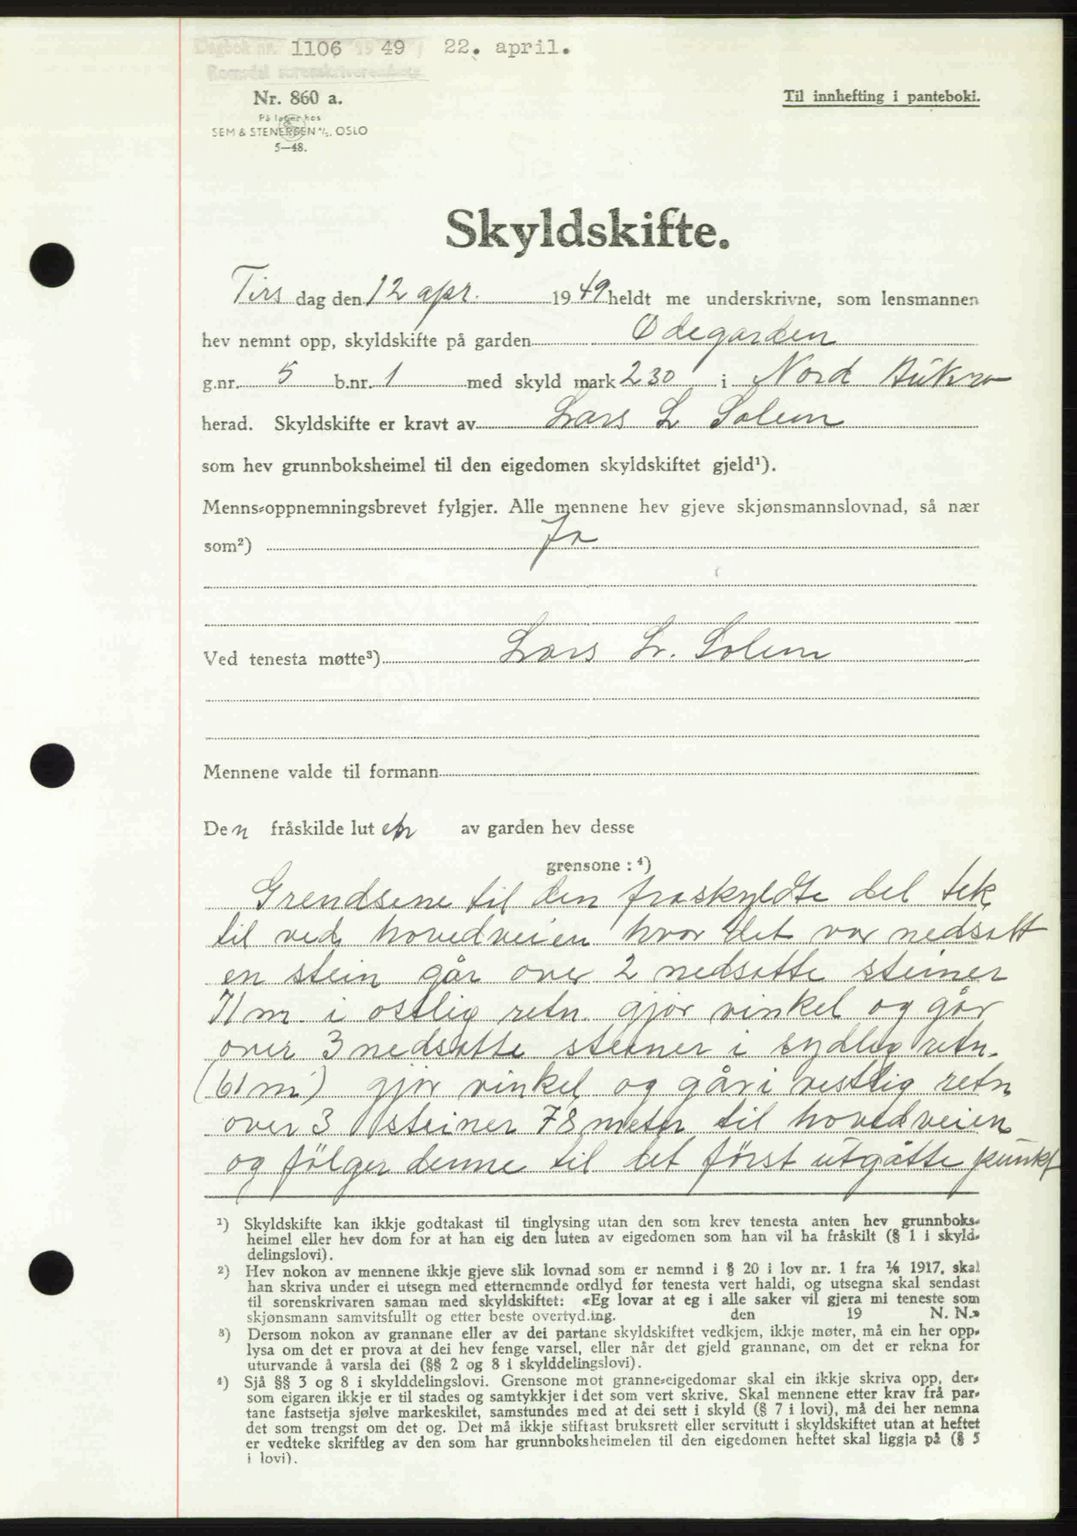 Dagbok nr. 1106 1949 22. april.
Romsdal sorenskriverembete
Nr. 860 a.
På lager hos
SEM & STENERSEN A/S, OSLO
5—48.
Til innhefting i panteboki.
Skyldskifte.
Tirs dag den 12 apr. 1949 heldt me underskrivne, som lensmannen
hev nemnt opp, skyldskifte på garden Ødegarden
g.nr. 5 b.nr. 1 med skyld mark 2 30 i Nord Aukra
herad. Skyldskifte er kravt av Lars L Solem
som hev grunnboksheimel til den eigedomen skyldskiftet gjeld¹).
Menns-oppnemningsbrevet fylgjer. Alle mennene hev gjeve skjønsmannslovnad, så nær
som²) Ja
Ved tenesta møtte³) Lars L. Solem
Mennene valde til formann
Den fråskilde lut en av garden hev desse
grensone : ⁴)
Grendsene til den fraskyldte del tek
til ved hovedveien hvor det var nedsatt
en stein går over 2 nedsatte steiner
71 m. i ostlig retn. gjør vinkel og går
over 3 nedsatte steiner i sydleg retn.
(61 m) gjør vinkel og går i vestlig retn
over 3 steiner 78 meter til hovedveien
og følger denne til det først utgåtte punkt
¹) Skyldskifte kan ikkje godtakast til tinglysing utan den som krev tenesta anten hev grunnboks-
heimel eller hev dom for at han eig den luten av eigedomen som han vil ha fråskilt (§ 1 i skyld-
delingslovi).
²) Hev nokon av mennene ikkje gjeve slik lovnad som er nemnd i § 20 i lov nr. 1 fra 1/6 1917, skal
han skriva under ei utsegn med etternemnde ordlyd før tenesta vert haldi, og utsegna skal sendast
til sorenskrivaren saman med skyldskiftet: «Eg lovar at eg i alle saker vil gjera mi teneste som
skjønsmann samvitsfullt og etter beste overtyding. den 19 N. N.»
³) Dersom nokon av grannane eller av dei partane skyldskiftet vedkjem, ikkje møter, må ein her opp-
lysa om det er prova at dei hev fenge varsel, eller når det gjeld grannane, om det er rekna for
uturvande å varsla dei (§§ 2 og 8 i skylddelingslovi).
⁴) Sjå §§ 3 og 8 i skylddelingslovi. Grensone mot granne-eigedomar skal ein ikkje skriva opp, der-
som eigaren ikkje er til stades og samtykkjer i det som vert skrive. Skal mennene etter krav frå par-
tane fastsetja sjølve markeskilet, samstundes med at dei sett i skyld (§ 7 i lovi), må dei her nemna
det som trengst om det og. Det må ikkje stiftast bruksrett eller servitutt i skyldskiftet utan at heftet
er vedteke skriftleg av den som har grunnboksheimelen til den eigedomen heftet skal liggja på (§ 5
i lovi).